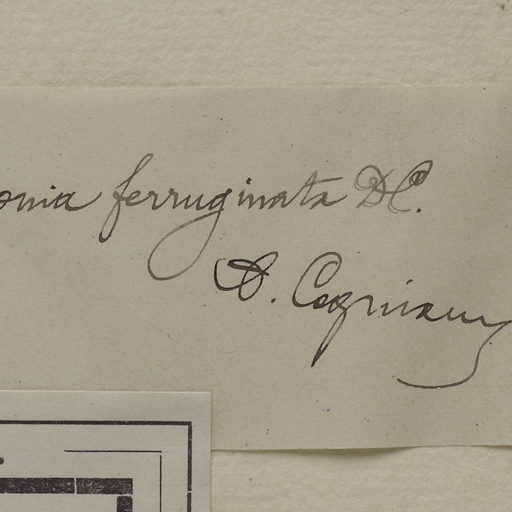 onia ferruginata DC.
A. Cogniaux